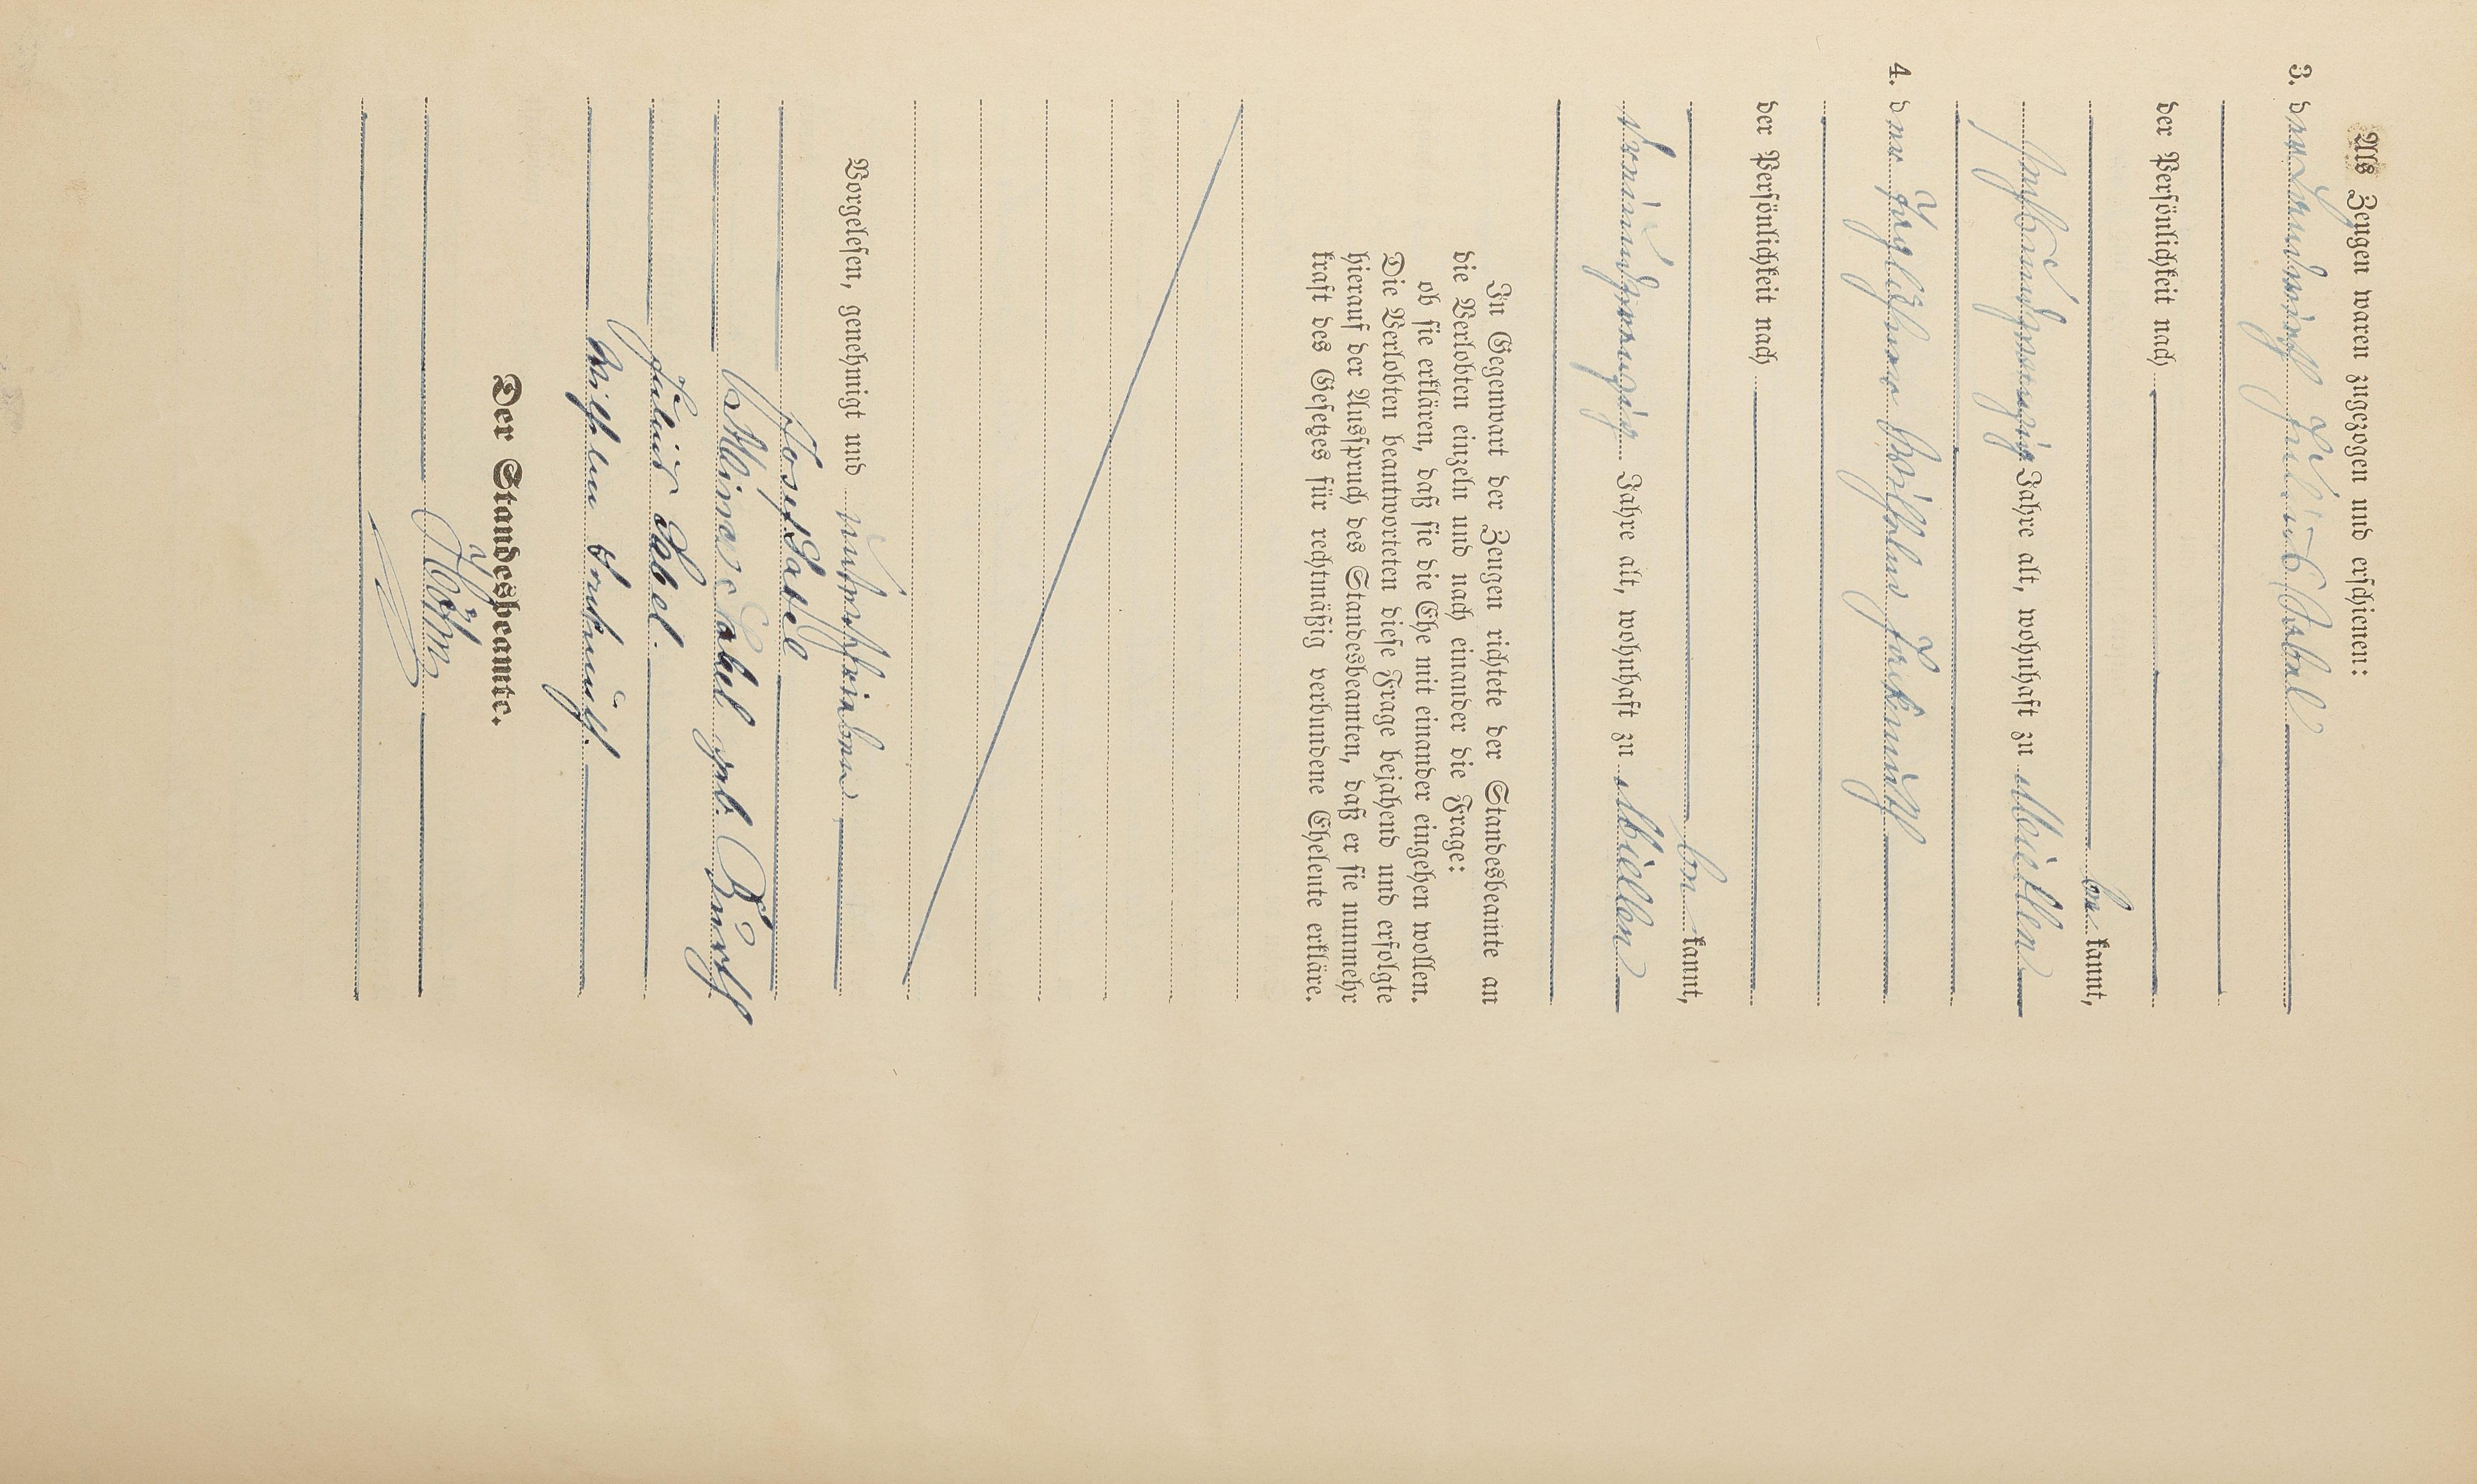 Als Zeugen waren zugezogen und erschienen:
3. der Landwirth Julius Sabel
der Persönlichkeit nach
be kannt,
sechsundzwanzig Jahre alt, wohnhaft zu Miellen
4. der Taglöhner Wilhelm
der Persönlichkeit nach
be kannt,
dreiundzwanzig Jahre alt, wohnhaft zu Miellen
In Gegenwart der Zeugen richtete der Standesbeamte an
die Verlobten einzeln und nach einander die Frage:
ob sie erklären, daß sie die Ehe mit einander eingehen wollen.
Die Verlobten beantworteten diese Frage bejahend und erfolgte
hierauf der Ausspruch des Standesbeamten, daß er sie nunmehr
kraft des Gesetzes für rechtmäßig verbundene Eheleute erkläre.
Vorgelesen, genehmigt und unterschrieben
Josef Sabel
Mina Sabel geb.
Julius Sabel.
Wilhelm
Der Standesbeamte.